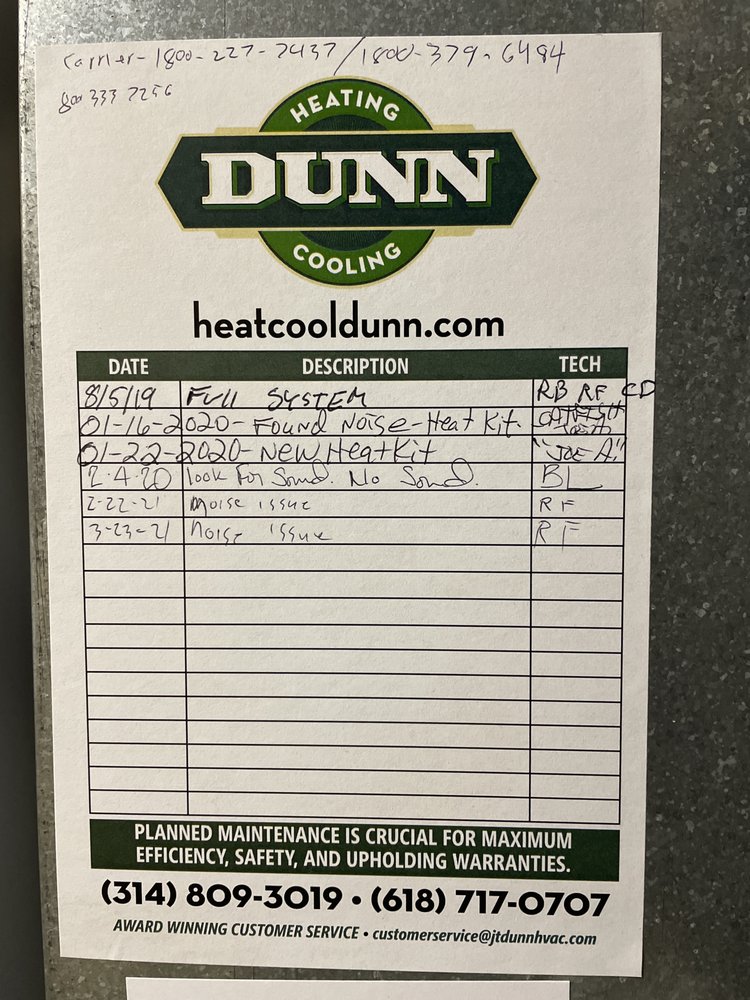 Carrier - 1800-227-7437/1800-379-6484
800 333 7256
HEATING
DUNN
COOLING
heatcooldunn.com
DATE DESCRIPTION TECH
8/5/19 FUll SYSTEM RB RF CD
01-16-2020- FOUND NOiSE-Heat Kit.
01-22-2020- NEW HeatKit "JOE A."
2-4-20 look For Sound. No Sound. BL
2-22-21 noise issue RF
3-23-21 noise issue RF
PLANNED MAINTENANCE IS CRUCIAL FOR MAXIMUM
EFFICIENCY, SAFETY, AND UPHOLDING WARRANTIES.
(314) 809-3019 • (618) 717-0707
AWARD WINNING CUSTOMER SERVICE • customerservice@jtdunnhvac.com